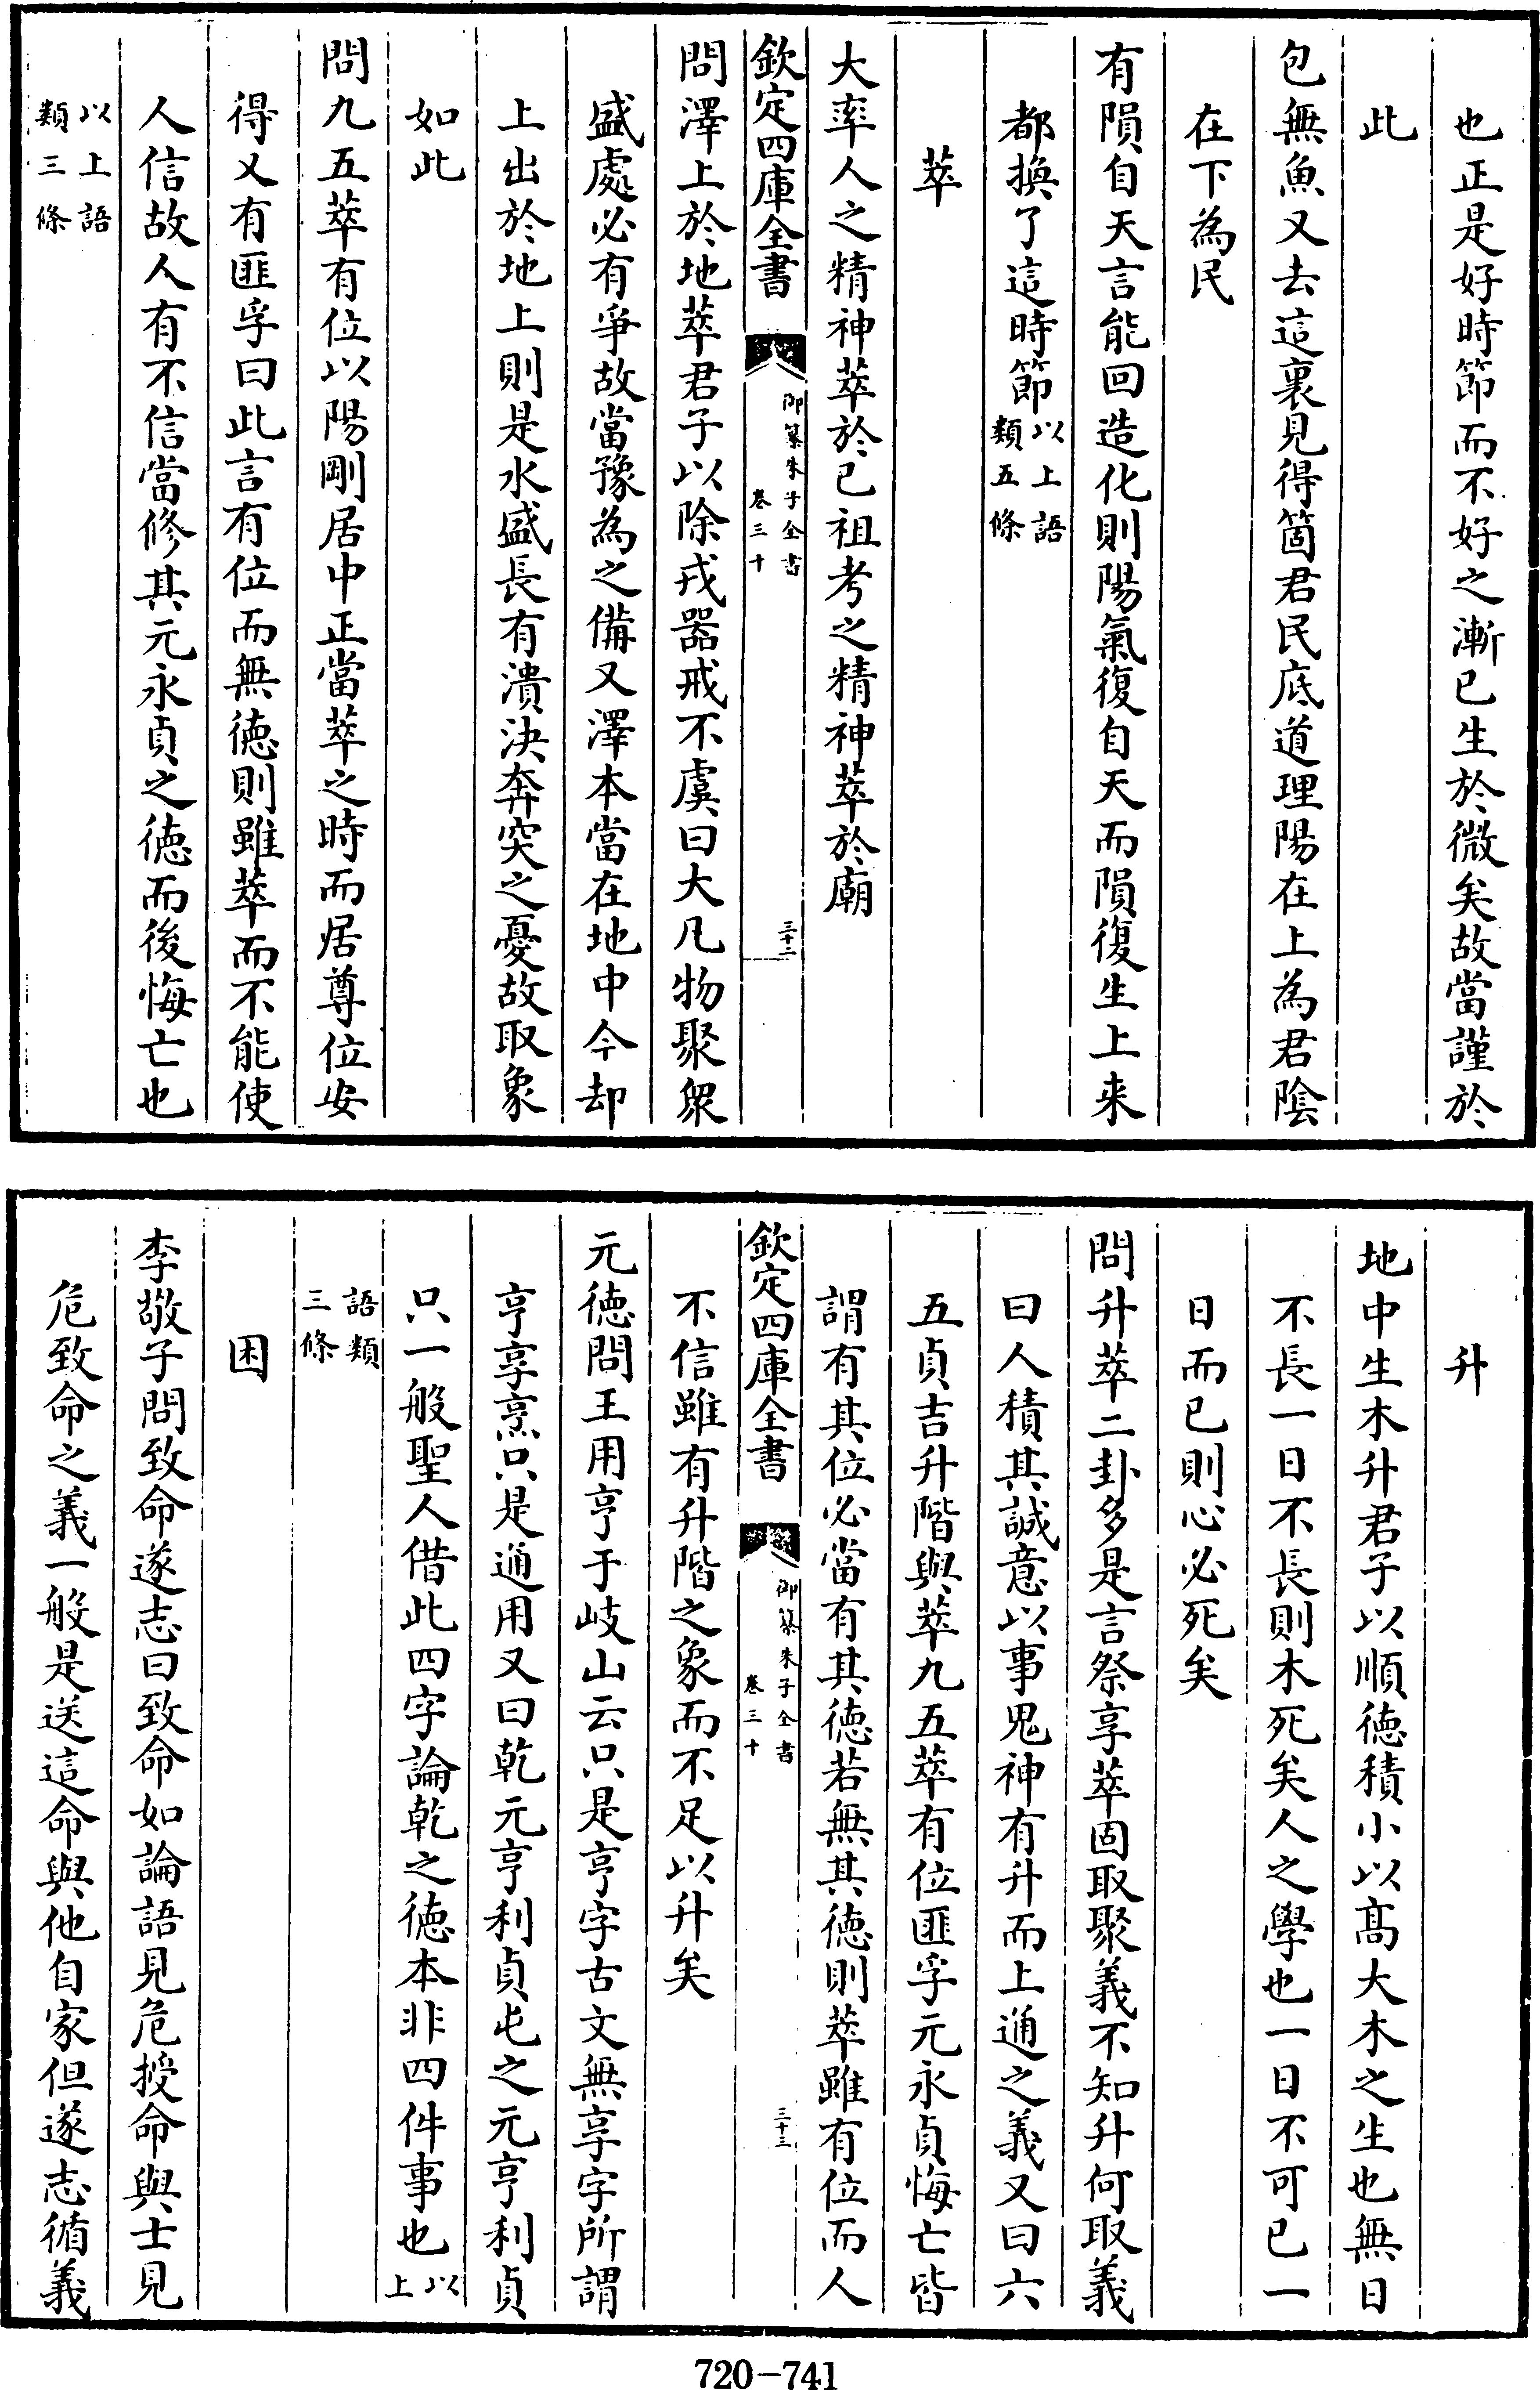 也正是好時節而不好之漸已生於微矣故當謹於
此
包無魚又去這裏見得箇君民底道理陽在上為君陰
在下為民
有隕自天言能回造化則陽氣復自天而隕復生上来
都換了這時節以上語類五條
萃
大率人之精神萃於已祖考之精神萃於廟
欽定四庫全書 御纂朱子全書 卷三十 三十二
問澤上於地萃君子以除戎器戒不虞曰大凡物聚衆
盛處必有爭故當豫為之備又澤本當在地中今却
上出於地上則是水盛長有潰決奔突之憂故取象
如此
問九五萃有位以陽剛居中正當萃之時而居尊位安
得又有匪孚曰此言有位而無徳則雖萃而不能使
人信故人有不信當修其元永貞之徳而後悔亡也
以上語類三條
升
地中生木升君子以順徳積小以髙大木之生也無日
不長一日不長則木死矣人之學也一日不可已一
日而已則心必死矣
問升萃二卦多是言祭享萃固取聚義不知升何取義
曰人積其誠意以事鬼神有升而上通之義又曰六
五貞吉升階與萃九五萃有位匪孚元永貞悔亡皆
謂有其位必當有其徳若無其徳則萃雖有位而人
欽定四庫全書 御纂朱子全書 卷三十 三十三
不信雖有升階之象而不足以升矣
元徳問王用亨于岐山云只是亨字古文無享字所謂
亨享烹只是通用又曰乾元亨利貞屯之元亨利貞
只一般聖人借此四字論乾之徳本非四件事也以上
語類三條
困
李敬子問致命遂志曰致命如論語見危授命與士見
危致命之義一般是送這命與他自家但遂志循義
720-741